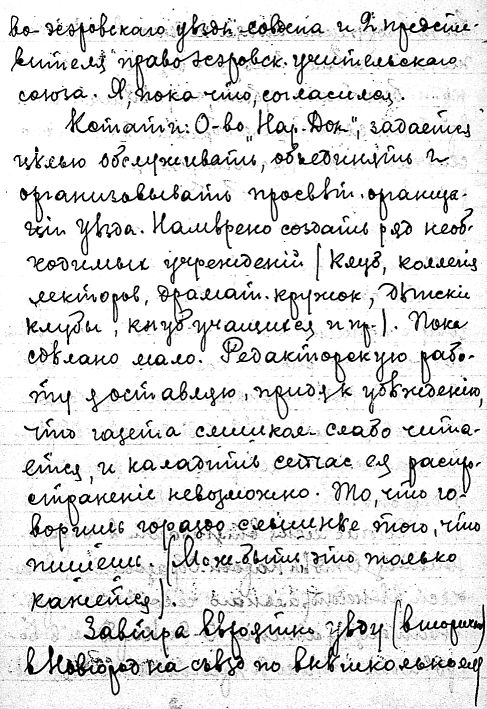 во-эсэровскаго уѣздн. совдепа и 2 предста-
вителя право эсэровск. учительскаго
союза. Я, пока что, согласился.
Кстати: О-во "Нар. Дом", задается
цѣлью обслуживать, объединять и
организовывать просвѣт. организа-
ціи уѣзда. Намѣрено создать ряд необ-
ходимых учреждений (клуб, коллегія
лекторов, драмат. кружок, дѣтскіе
клубы, клуб учащихся и пр.). Пока
сдѣлано мало. Редакторскую рабо-
ту доставляю, придя к убѣжденію,
что газета слишком слабо чита-
ется, и наладить сейчас ея распро-
страненіе невозможно. То, что го-
воришь гораздо слышнѣе того, что
пишешь. (Мож. быть это только
кажется).
Завтра вѣроятно уѣду (вторично)
в Новгород на съѣзд по внѣшкольному